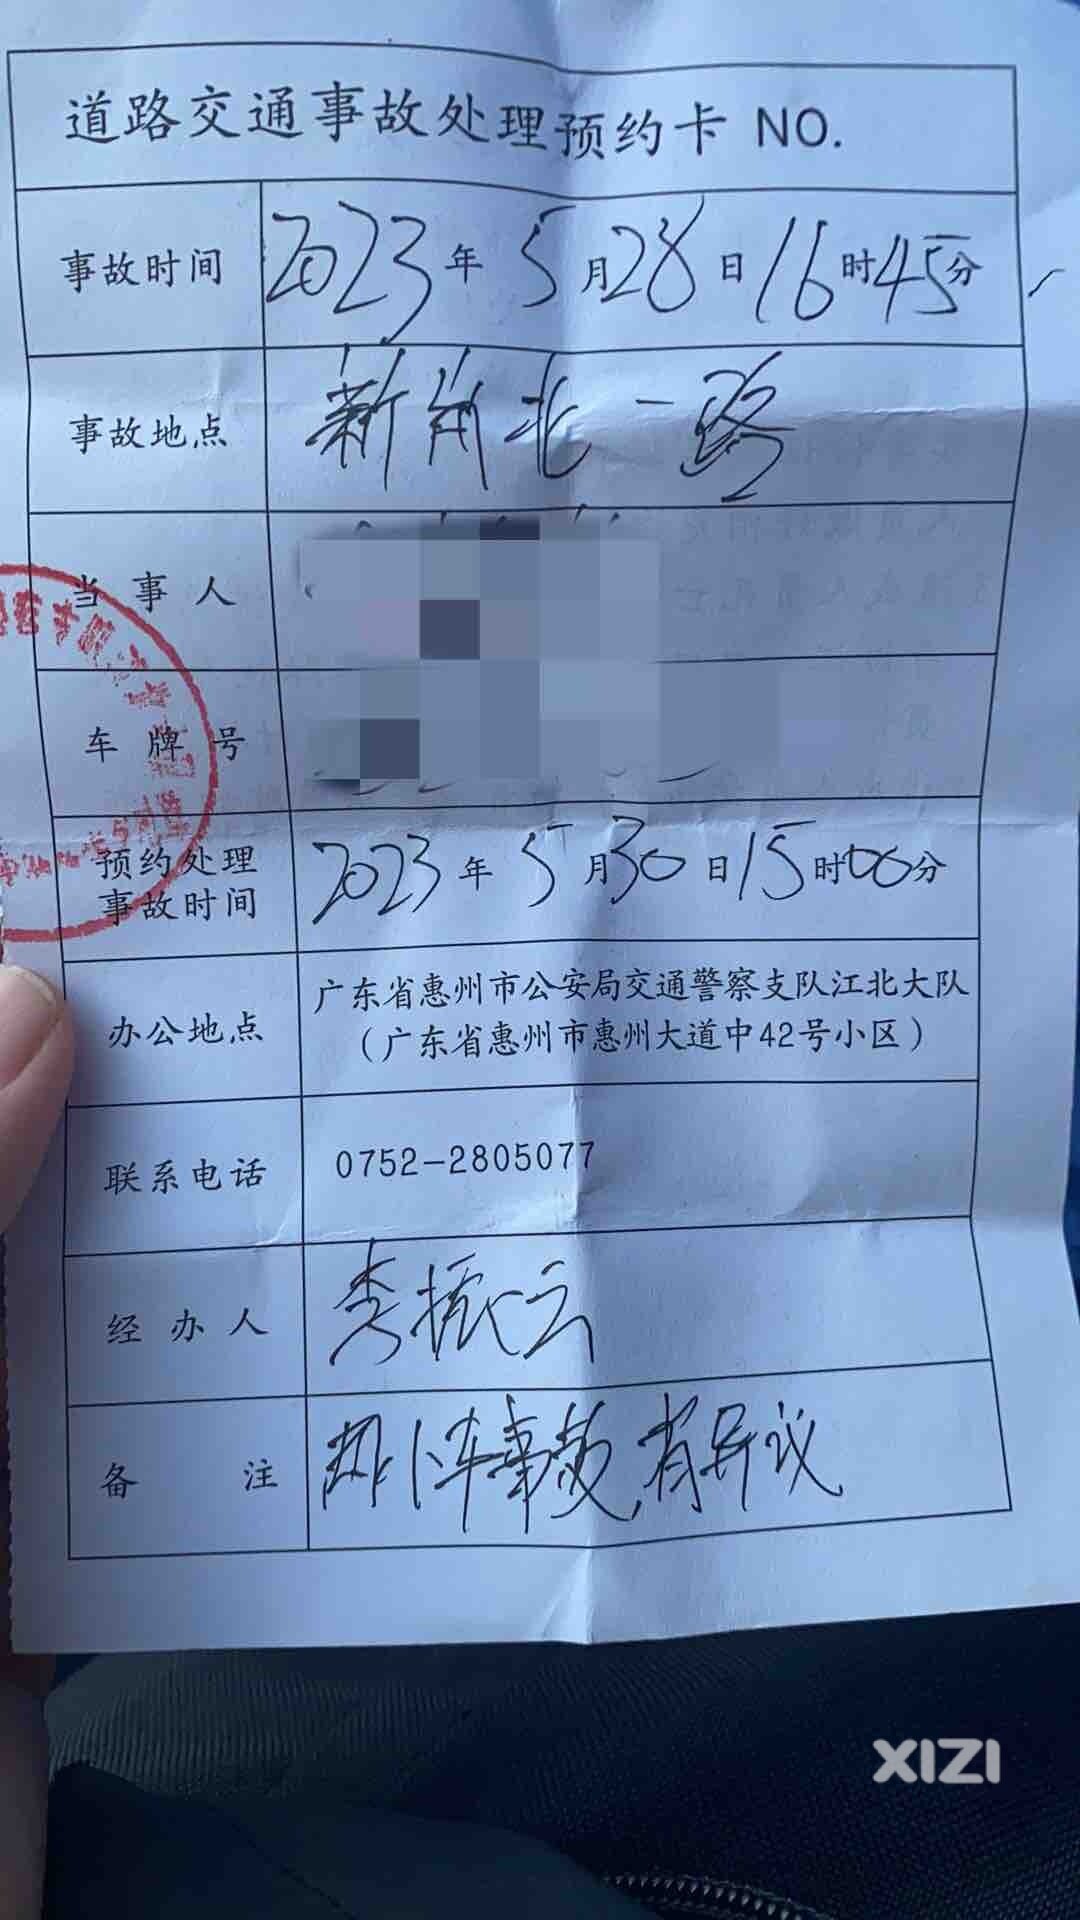 道路交通事故处理预约卡 NO.
事故时间 2023年5月28日16时45分
事故地点 新岗北一路
当事人
车牌号
预约处理
事故时间 2023年5月30日15时00分
办公地点 广东省惠州市公安局交通警察支队江北大队
（广东省惠州市惠州大道中42号小区）
联系电话 0752-2805077
经办人 李振云
备注 车事故,有异议
XIZI